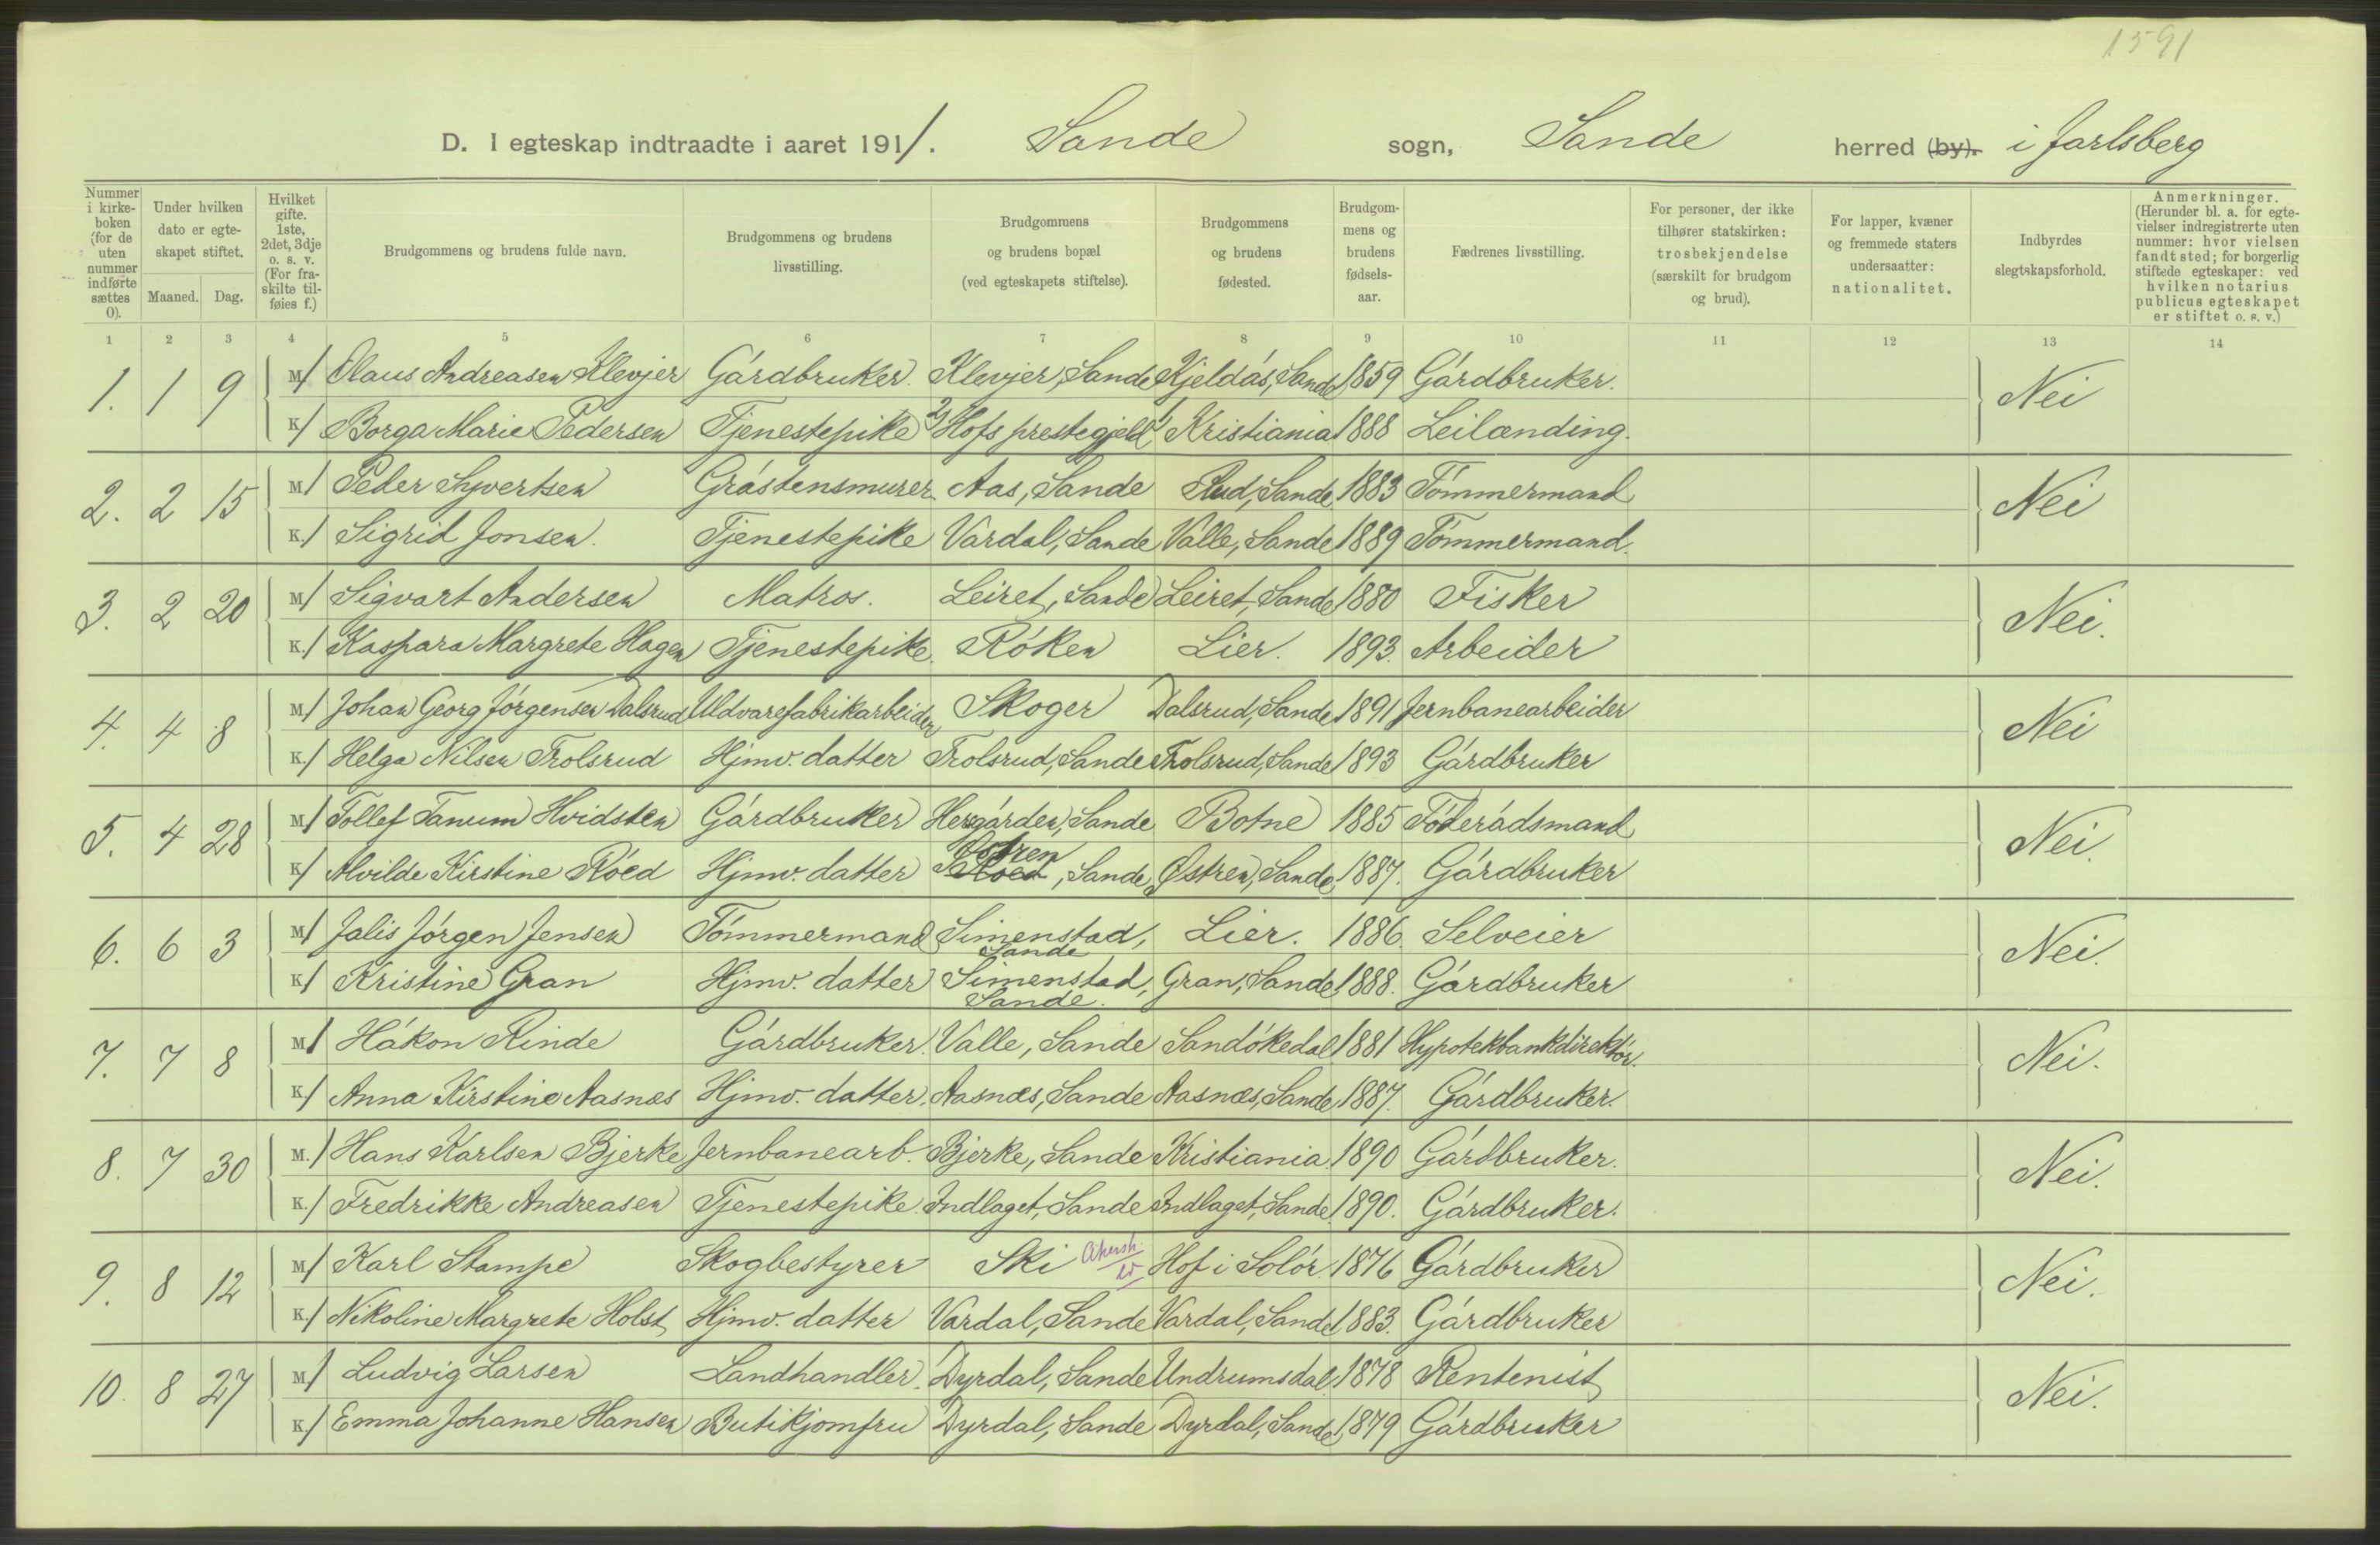 1591
D. I egteskap indtraadte i aaret 1911. Sande sogn, Sande herred (by). i Jarlsberg
Nummer i kirke-boken (for de uten nummer indførte sættes 0).
Under hvilken dato er egte-skapet stiftet.
Maaned. Dag.
Hvilket gifte. 1ste, 2det, 3dje o. s. v. (For fra-skilte til-føies f.)
Brudgommens og brudens fulde navn.
Brudgommens og brudens livsstilling.
Brudgommens og brudens bopæl (ved egteskapets stiftelse).
Brudgommens og brudens fødested.
Brudgom-mens og brudens fødsels-aar.
Fædrenes livsstilling.
For personer, der ikke tilhører statskirken: trosbekjendelse (særskilt for brudgom og brud).
For lapper, kvæner og fremmede staters undersaatter: nationalitet.
Indbyrdes slegtskapsforhold.
Anmerkninger. (Herunder bl. a. for egte-vielser indregistrerte uten nummer: hvor vielsen fandt sted; for borgerlig stiftede egteskaper: ved hvilken notarius publicus egteskapet er stiftet o. s. v.)
1 2 3 4 5 6 7 8 9 10 11 12 13 14
1. 1 9 M/ Olaus Andreasen Klevjer Gårdbruker. Klevjer, Sande Kjeldås, Sande 1859 Gårdbruker. Nei
K/ Borga Marie Pedersen Tjenestepike Hofs prestegjeld Kristiania 1888 Leilænding.
2. 2 15 M/ Peder Syvertsen Gråstensmurer Aas, Sande Rud, Sande 1883 Tömmermand Nei
K./ Sigrid Jonsen. Tjenestepike Vardal, Sande Valle, Sande 1889 Tömmermand.
3. 2 20 M/ Sigvart Andersen Matros. Leiret, Sande Leiret, Sande 1880 Fisker Nei.
K./ Kaspara Margrete Hagen Tjenestepike. Röken Lier. 1893. Arbeider
4. 4 8 M/ Johan Georg Jörgensen Dalsrud Uldvarefabrikarbeider Skoger Dalsrud, Sande 1891 Jernbanearbeider Nei
K./ Helga Nilsen Trolsrud Hjmv. datter Trolsrud, Sande Trolsrud, Sande 1893 Gårdbruker
5. 4 28 M/ Tollef Tanum Hvidsten Gårdbruker Hergården, Sande Botne 1885 Föderådsmand Nei.
K/ Alvilde Kirstine Röed Hjmv. datter Östren Röed, Sande Østren, Sande 1887. Gårdbruker
6. 6 3 M/ Jalis Jörgen Jensen Tömmermand Simenstad, Sande Lier. 1886. Selveier Nei.
K/ Kristine Gran Hjmv. datter Simenstad, Sande. Gran, Sande 1888. Gårdbruker
7. 7 8 M/ Håkon Rinde Gårdbruker. Valle, Sande Sandökedal 1881 Hypotekbankdirektör. Nei.
K/ Anna Kirstine Aasnæs Hjmv. datter. Aasnæs, Sande Aasnæs, Sande 1887. Gårdbruker.
8. 7 30 M./ Hans Karlsen Bjerke Jernbanearb. Bjerke, Sande Kristiania. 1890 Gårdbruker. Nei.
K./ Fredrikke Andreasen Tjenestepike. Indlaget, Sande Indlaget, Sande 1890. Gårdbruker.
9. 8 12 M/ Karl Stampe Skogbestyrer Ski Akersh. Hof i Solör. 1876 Gårdbruker Nei.
K./ Nikoline Margrete Holst Hjmv. datter Vardal, Sande Vardal, Sande 1883. Gårdbruker
10. 8 27 M/ Ludvig Larsen Landhandler. Dyrdal, Sande Undrumsdal. 1878 Rentenist Nei.
K/ Emma Johanne Hansen Butikjomfru Dyrdal, Sande Dyrdal, Sande 1879 Gårdbruker